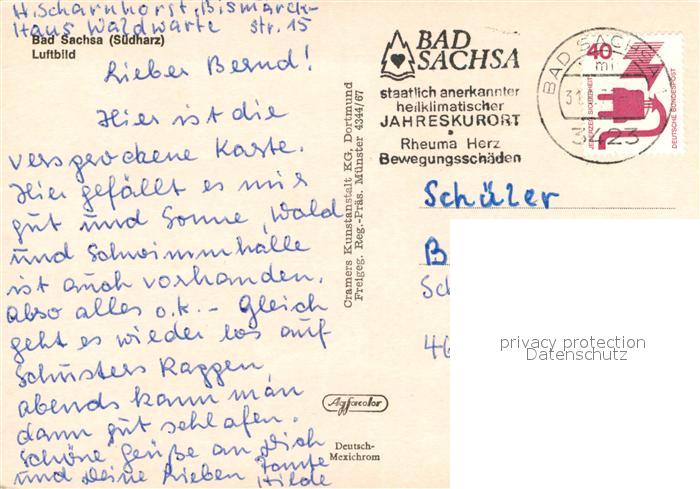 H. Scharnhorst, Bismarck-
Haus Waldwarte Str. 15
Bad Sachsa (Südharz)
Luftbild
Lieber Bernd!
Hier ist die
versprochene Karte.
Hier gefällt es mir
gut und Sonne, Wald
und Schwimmhalle
ist auch vorhanden.
Also alles o.k. - Gleich
geht es wieder los auf
Schusters Rappen,
abends kann man
dann gut schlafen.
Schöne Grüße an Dich
und Deine Lieben Tante
Hilde
Cramers Kunstanstalt KG, Dortmund
Freigeg. Reg.-Präs. Münster 4344/67
Agfacolor
Deutsch-
Mexichrom
BAD
SACHSA
staatlich anerkannter
heilklimatischer
JAHRESKURORT
Rheuma Herz
Bewegungsschäden
BAD SACHSA
mi
31
3423
40
JEDERZEIT SICHERHEIT
DEUTSCHE BUNDESPOST
Schüler
B
Sc
46
privacy protection
Datenschutz